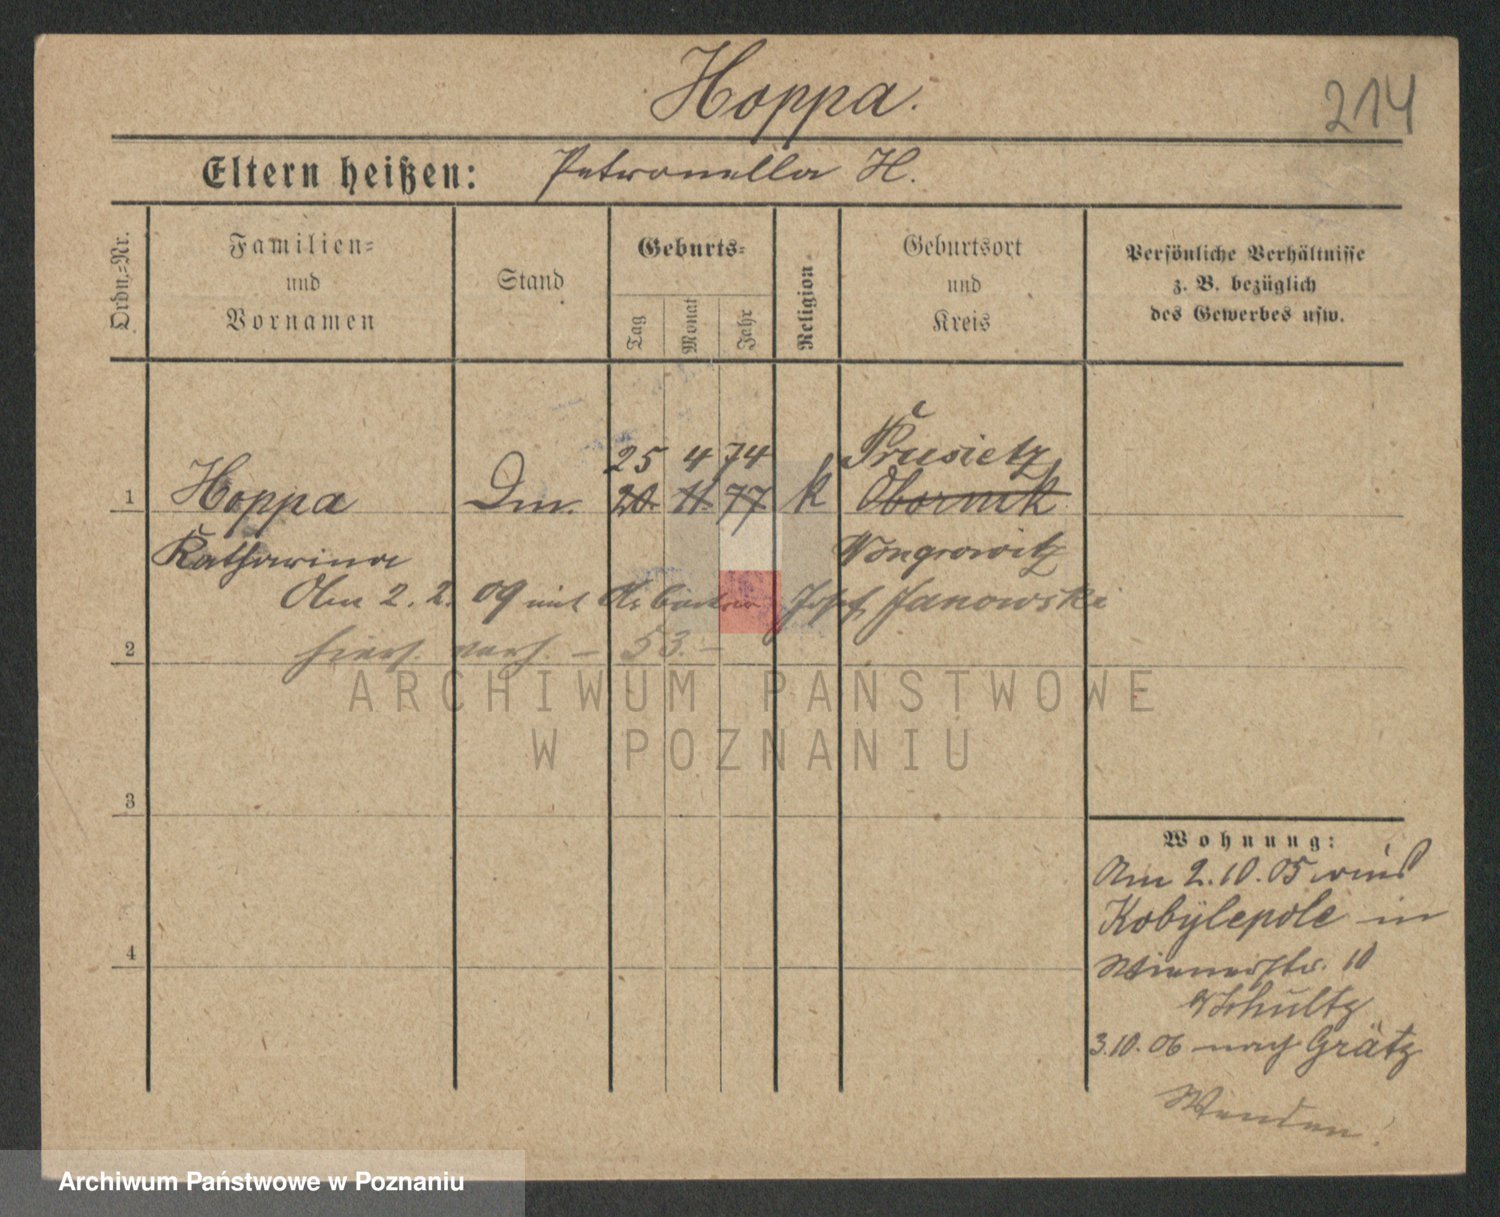 Hoppa.
214
Eltern heißen: Petronella H.
Ordn.-Nr.
Familien-
und
Vornamen
Stand
Geburts-
Tag
Monat
Jahr
Religion
Geburtsort
und
Kreis
Persönliche Verhältnisse
z. B. bezüglich
des Gewerbes usw.
25 4 74 Prusietz
1 Hoppa Dm. 20. 11 77 k Obornik
Katharina Wongrowitz
Am 2. 2. 09 mit Arbeiter Josef Janowski
2 hiers. verh. – 53. –
3
4
Wohnung:
Am 2.10.05 aus
Kobylepole in
Wienerstr. 10
Schultz
3.10.06 nach Grätz
Wenden!
ARCHIWUM PAŃSTWOWE
W POZNANIU
Archiwum Państwowe w Poznaniu